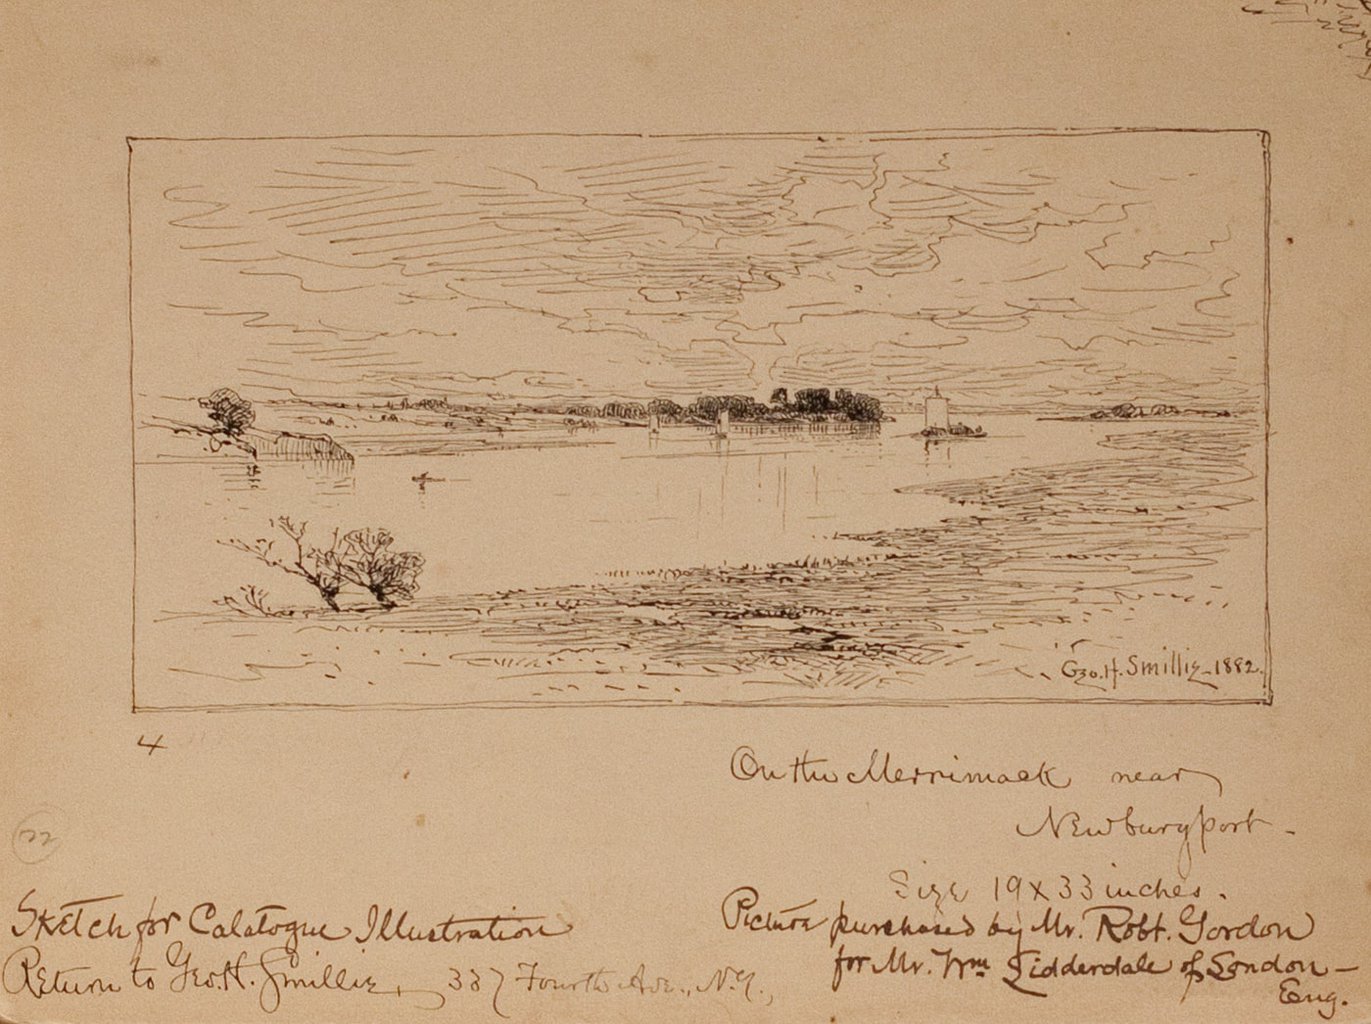 Geo. H. Smillie_1882.
4
On the Merrimack near
Newburyport -
22
Size 19 x 33 inches.
Sketch for Catalogue Illustration
Return to Geo. H. Smillie, 337 Fourth Ave., N.Y.,
Picture purchased by Mr. Robt. Gordon
for Mr. Wm Lidderdale of London -
Eng.